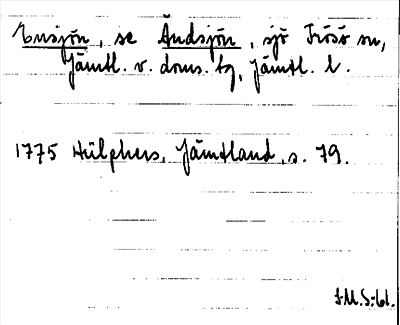 Ensjön, se Ändsjön, sjö Frösö sn,
Jämtl. v. doms. tg, Jämtl. l.
1775 Hülphers, Jämtland, s. 79.
J.M.S:bl.